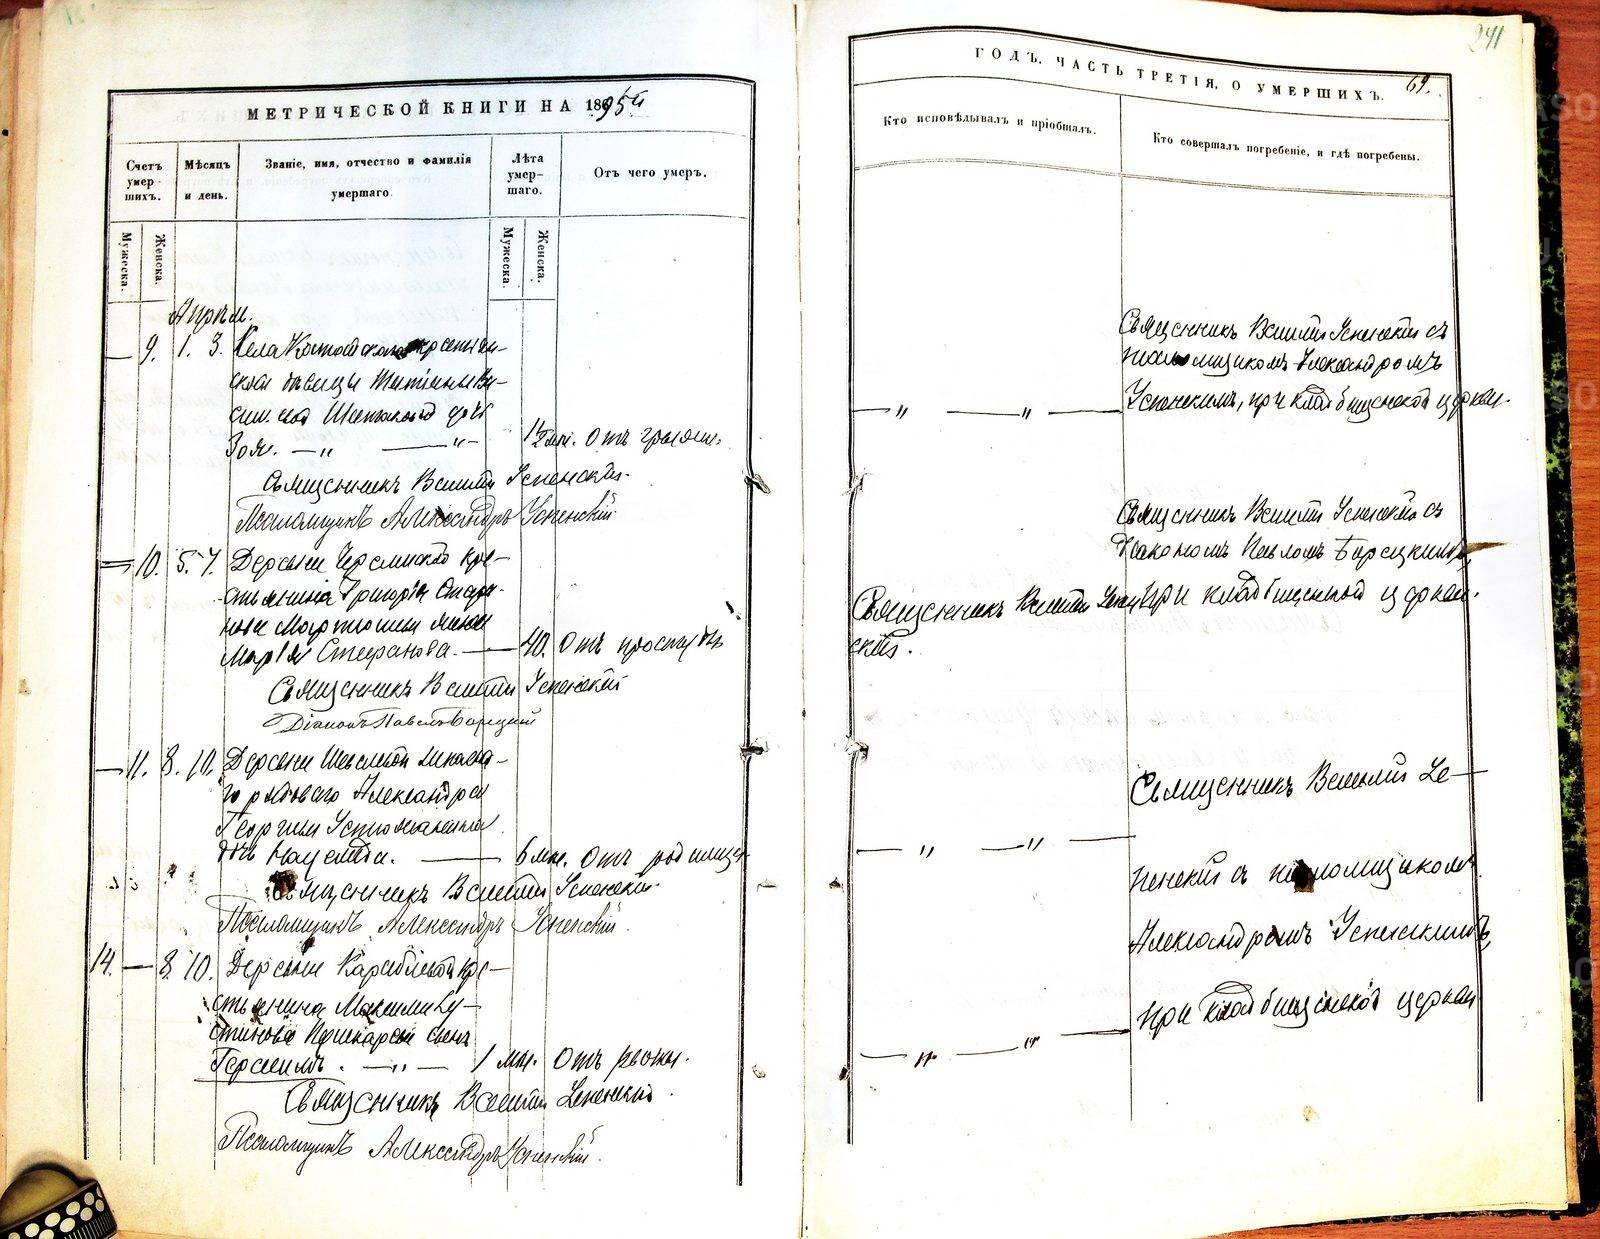 241
МЕТРИЧЕСКОЙ КНИГИ НА 1895й
ГОДЪ. ЧАСТЬ ТРЕТІЯ, О УМЕРШИХЪ.
69.
Счетъ умер- шихъ.
Мѣсяцъ и день.
Званіе, имя, отчество и фамилія умершаго.
Лѣта умер- шаго.
Отъ чего умеръ.
Кто исповѣдывалъ и пріобщалъ.
Кто совершалъ погребеніе, и гдѣ погребены.
Мужеска.
Женска.
Мужеска.
Женска.
Апрѣль.
— 9. 1. 3. Села крестьян-
ской дѣвицы Татіаны
дочь
Зоя. — " — " — отъ грыжи.
Священникъ Василій Успенскій.
Псаломщикъ Александръ Успенскій
Священникъ Василій Успенскій съ
псаломщикомъ Александромъ
— " — " — Успенскимъ, при кладбищенской церкви.
10. 5. 7. Деревни кре-
стьянина Григорія
жена
Марія Стефанова. — 40. отъ простуды
Священникъ Василій Успенскій
Діаконъ Павелъ Борецкій
Священникъ Василій Успенскій съ
діакономъ Павломъ Борецкимъ,
Священникъ Василій Успен- при кладбищенской церкви.
скій.
— 11. 8. 10. Деревни
рядоваго Александра
Георгіева
дочь — 6 мѣс. отъ родимца
Священникъ Василій Успенскій
Псаломщикъ Александръ Успенскій.
Священникъ Василій Ус-
— " — " —
пенскій съ псаломщикомъ
Александромъ Успенскимъ,
при кладбищенской церкви
14. — 8. 10. Деревни кре-
стьянина Максима Иу-
стинова сынъ
Герасимъ. — " — 1 мѣс. отъ рвоты.
— " — " —
Священникъ Василій Успенскій.
Псаломщикъ Александръ Успенскій.